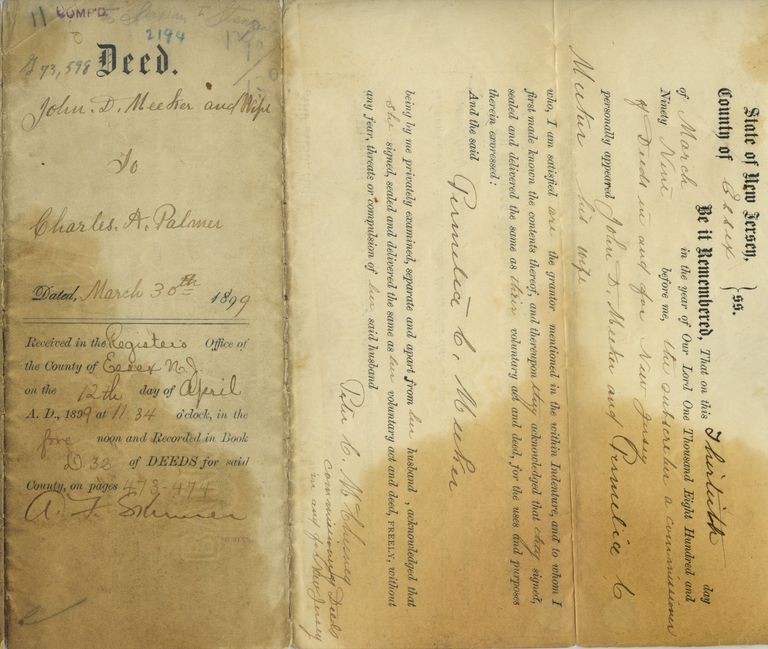 11 COMP'D.
2194
73,598 Deed.
John. D. Meeker and Wife
To
Charles. A. Palmer
Dated, March 30th 1899
Received in the Register's Office of
the County of Essex N.J.
on the 12th day of April
A. D., 1899 at 11.34 o'clock, in the
fore noon and Recorded in Book
D.32 of DEEDS for said
County, on pages 473-474
State of New Jersey,
County of Essex } ss.
Be it Remembered, That on this Thirtieth day
of March in the year of Our Lord One Thousand Eight Hundred and
Ninety Nine before me, the subscriber a commissioner
of Deeds in and for New Jersey
personally appeared John D. Meeker and Permelia C
Meeker his wife
who, I am satisfied are the grantor mentioned in the within Indenture, and to whom I
first made known the contents thereof, and thereupon they acknowledged that they signed,
sealed and delivered the same as their voluntary act and deed, for the uses and purposes
therein expressed:
And the said Permelia C. Meeker
being by me privately examined, separate and apart from her husband, acknowledged that
she signed, sealed and delivered the same as her voluntary act and deed, FREELY, without
any fear, threats or compulsion of her said husband
Commissioner Deeds
in and for New Jersey